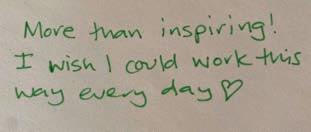 More than inspiring!
I wish I could work this
way every day ♡